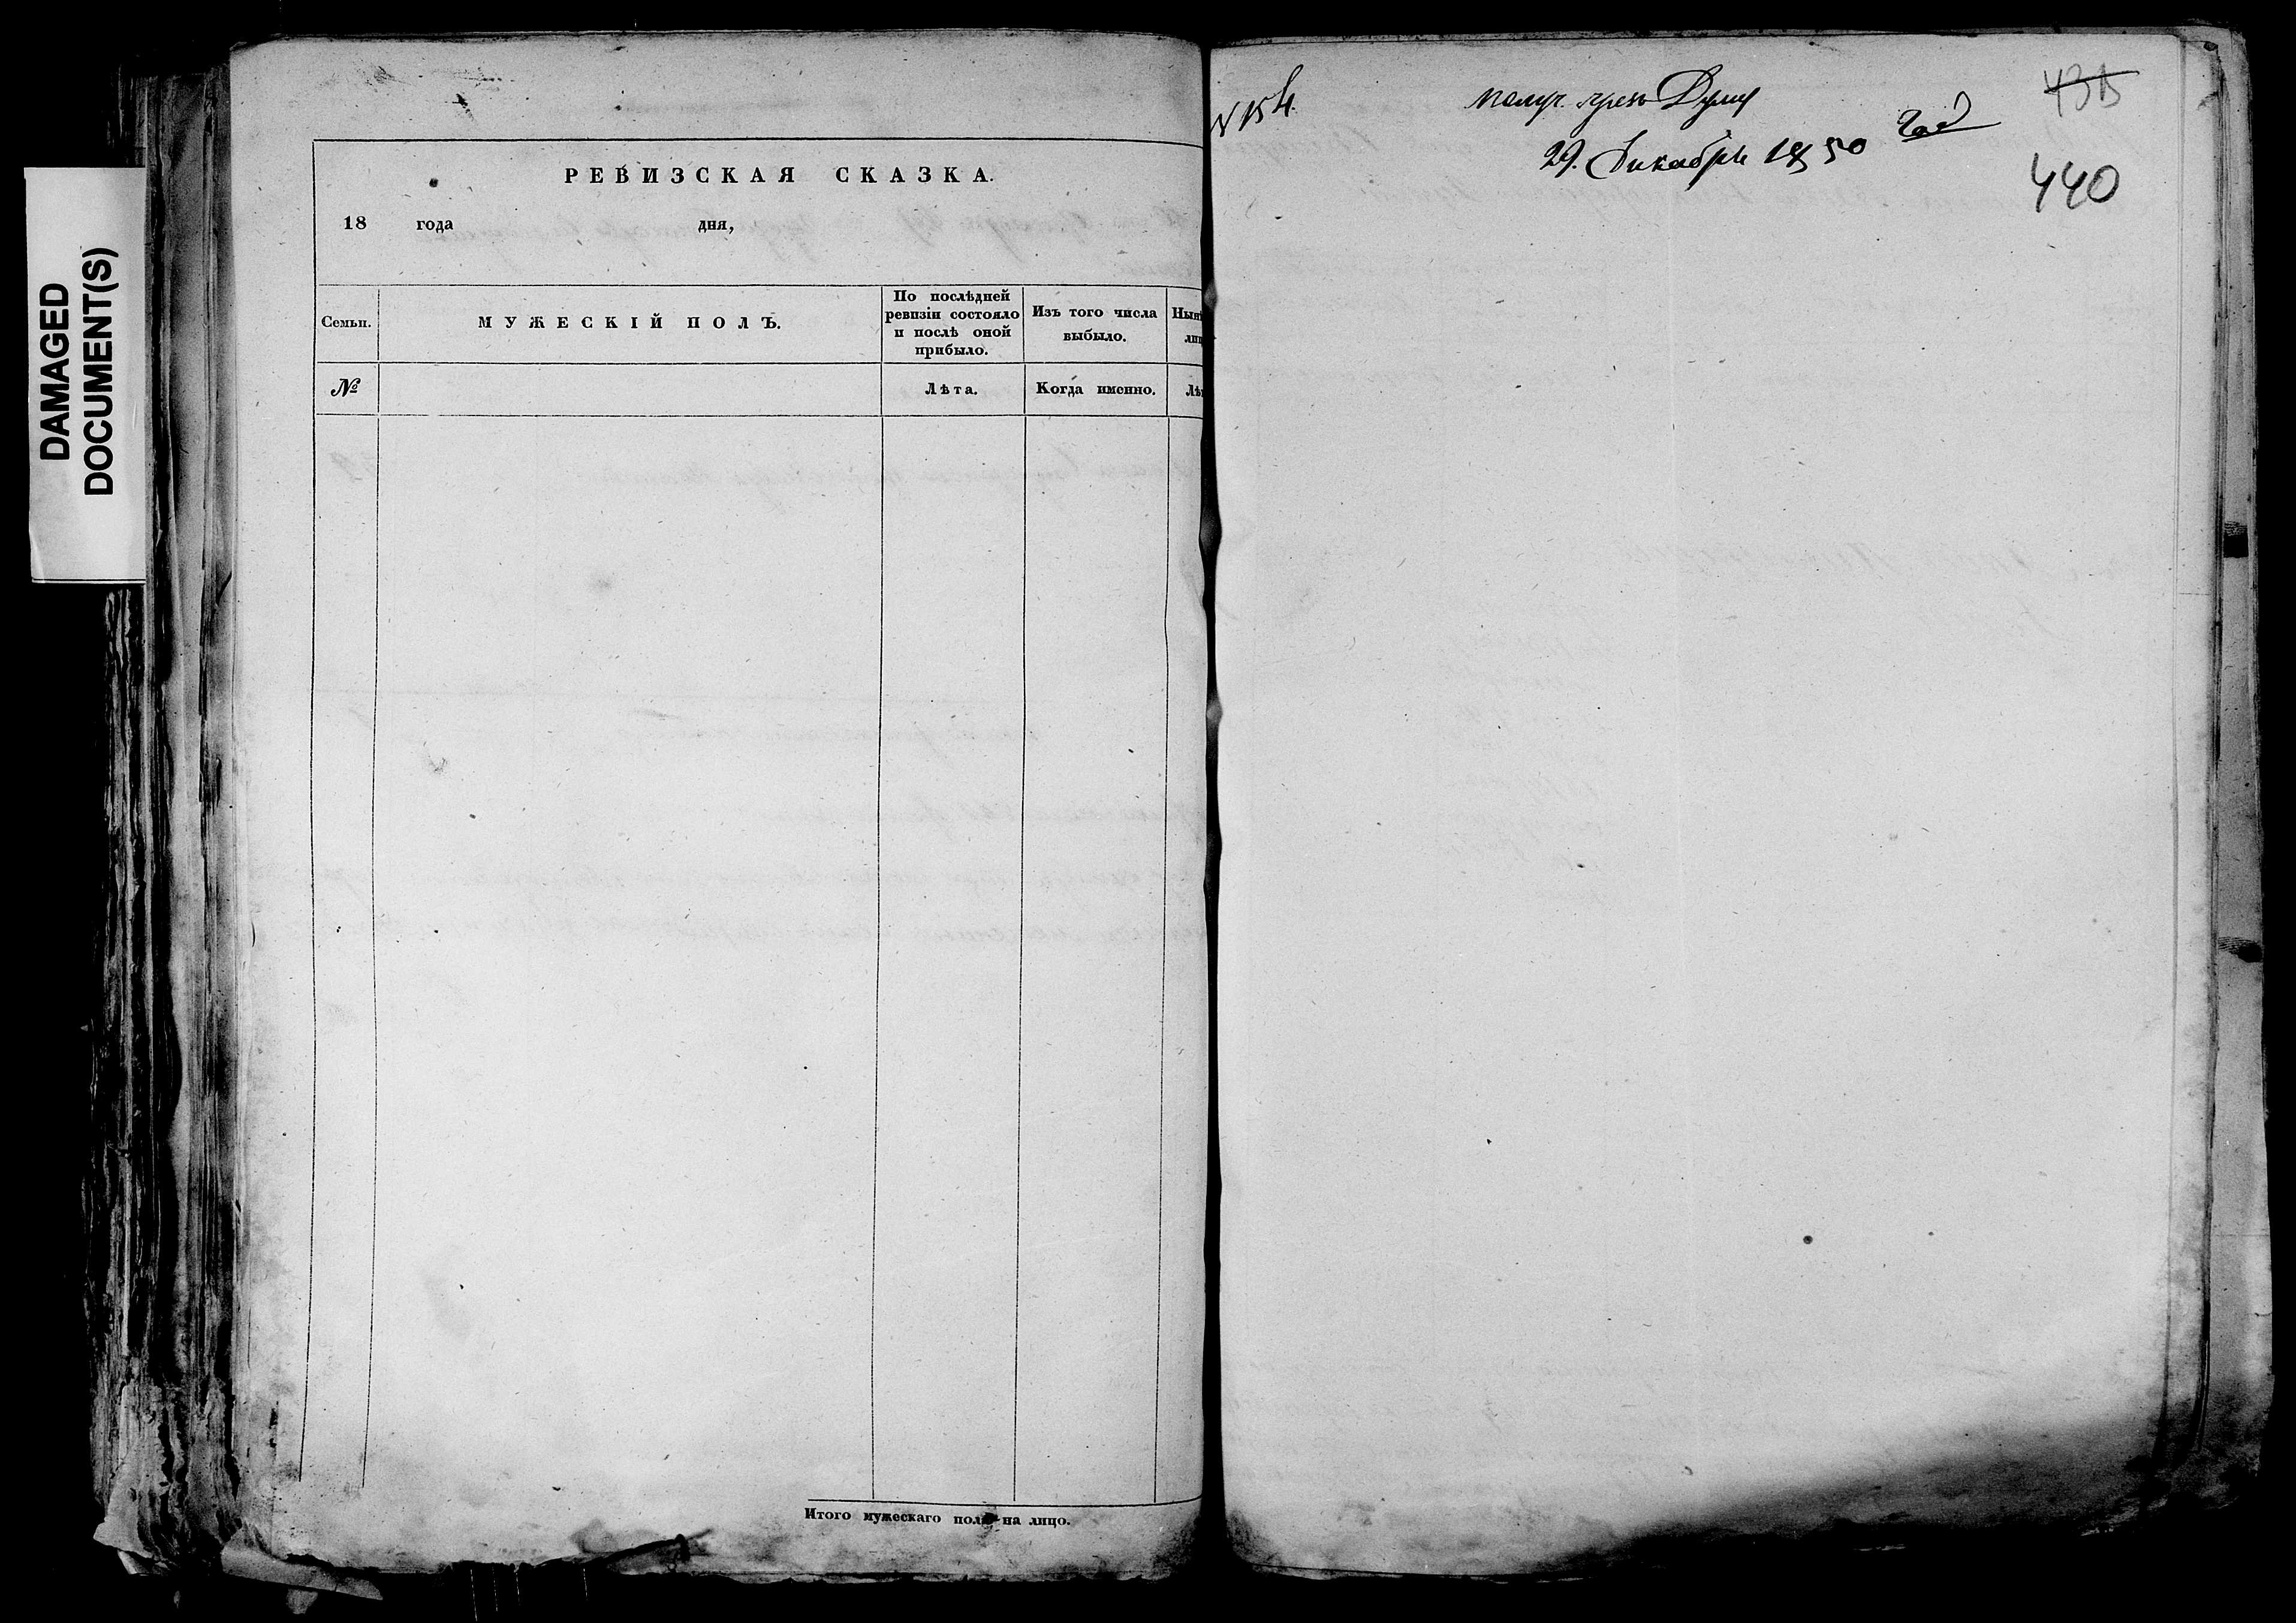 DAMAGED
DOCUMENT(S)
РЕВИЗСКАЯ СКАЗКА.
18 года дня,
Семьи.
МУЖЕСКІЙ ПОЛЪ.
По послѣдней
ревизіи состояло
и послѣ оной
прибыло.
Изъ того числа
выбыло.
Нын
лиц
№
Лѣта.
Когда именно.
Лѣ
Итого мужескаго пола на лицо.
N 154.
получ. чрезъ Думу
29. Декабря 1850 год
435
440